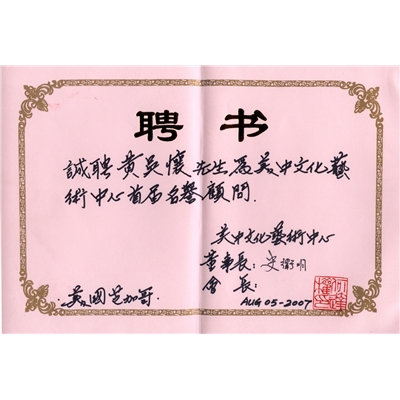 聘书
誠聘黄吴懷先生為美中文化藝
術中心首届名譽顧問.
美中文化藝術中心
董事長:史衛明
會 長:
AUG 05-2007
美國芝加哥.